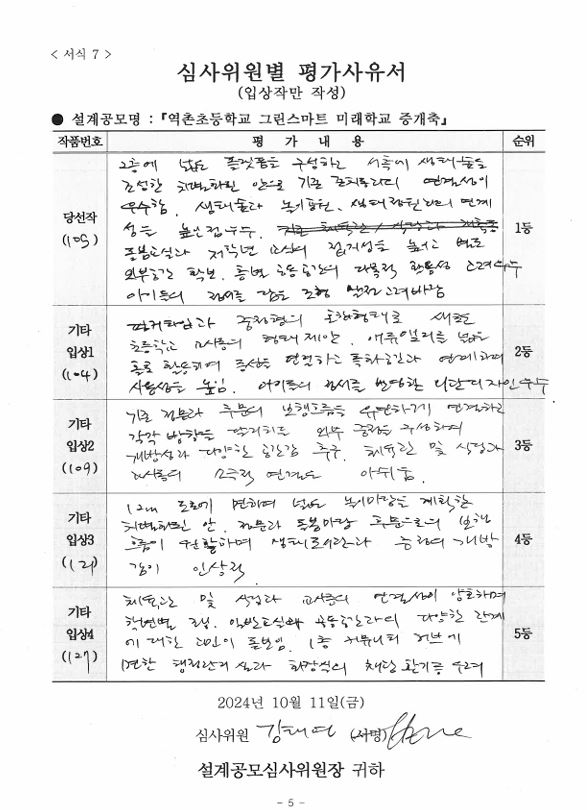 < 서식 7 >
심사위원별 평가사유서
(입상작만 작성)
● 설계공모명 : 『역촌초등학교 그린스마트 미래학교 증개축』
작품번호 평 가 내 용 순위
당선작
(105)
2층에 넓은 플랫폼을 구성하고 서측에 생태숲을
조성한 차별화된 안으로 기존 연결성이
우수함. 생태숲과 놀이공원, 생태 연계
성은 높은 점수.
돌봄교실과 저학년 교실의 접지성을 높이고 별도
외부공간 확보. 층별 공용공간의 다목적 활용성 고려 우수
아이들의 정서를 담은 조형
1등
기타
입상1
(104)
중정형의 새로운
초등학교 교사동의 형태 제안. 넓은
홀로 활용하여 동선을 연결하고 특화공간과 연계하며
사용성을 높임. 아이들의 정서를 반영한 입면디자인 우수
2등
기타
입상2
(109)
기존 정문과 후문의 보행흐름을 유연하게 연결하고
각각 방향을 외부 중정을 구성하여
개방성과 다양한 공간감 추구. 체육관 및 식당과
교사동의 연결은 아쉬움.
3등
기타
입상3
(121)
12m 도로에 면하여 넓은 놀이마당을 계획한
차별화된 안. 정문과 돌봄마당 후문으로의 보행
흐름이 원활하며 개방
감이 인상적
4등
기타
입상4
(127)
체육관 및 식당과 교사동의 연결성이 양호하며
학년별 조닝. 일반교실과 공용공간과의 다양한 관계
에 대한 고민이 돋보임. 1층 커뮤니티 허브에
면한 행정관리실과 화장실의 채광 환기등 우려
5등
2024년 10월 11일(금)
심사위원 김태영 (서명)
설계공모심사위원장 귀하
- 5 -